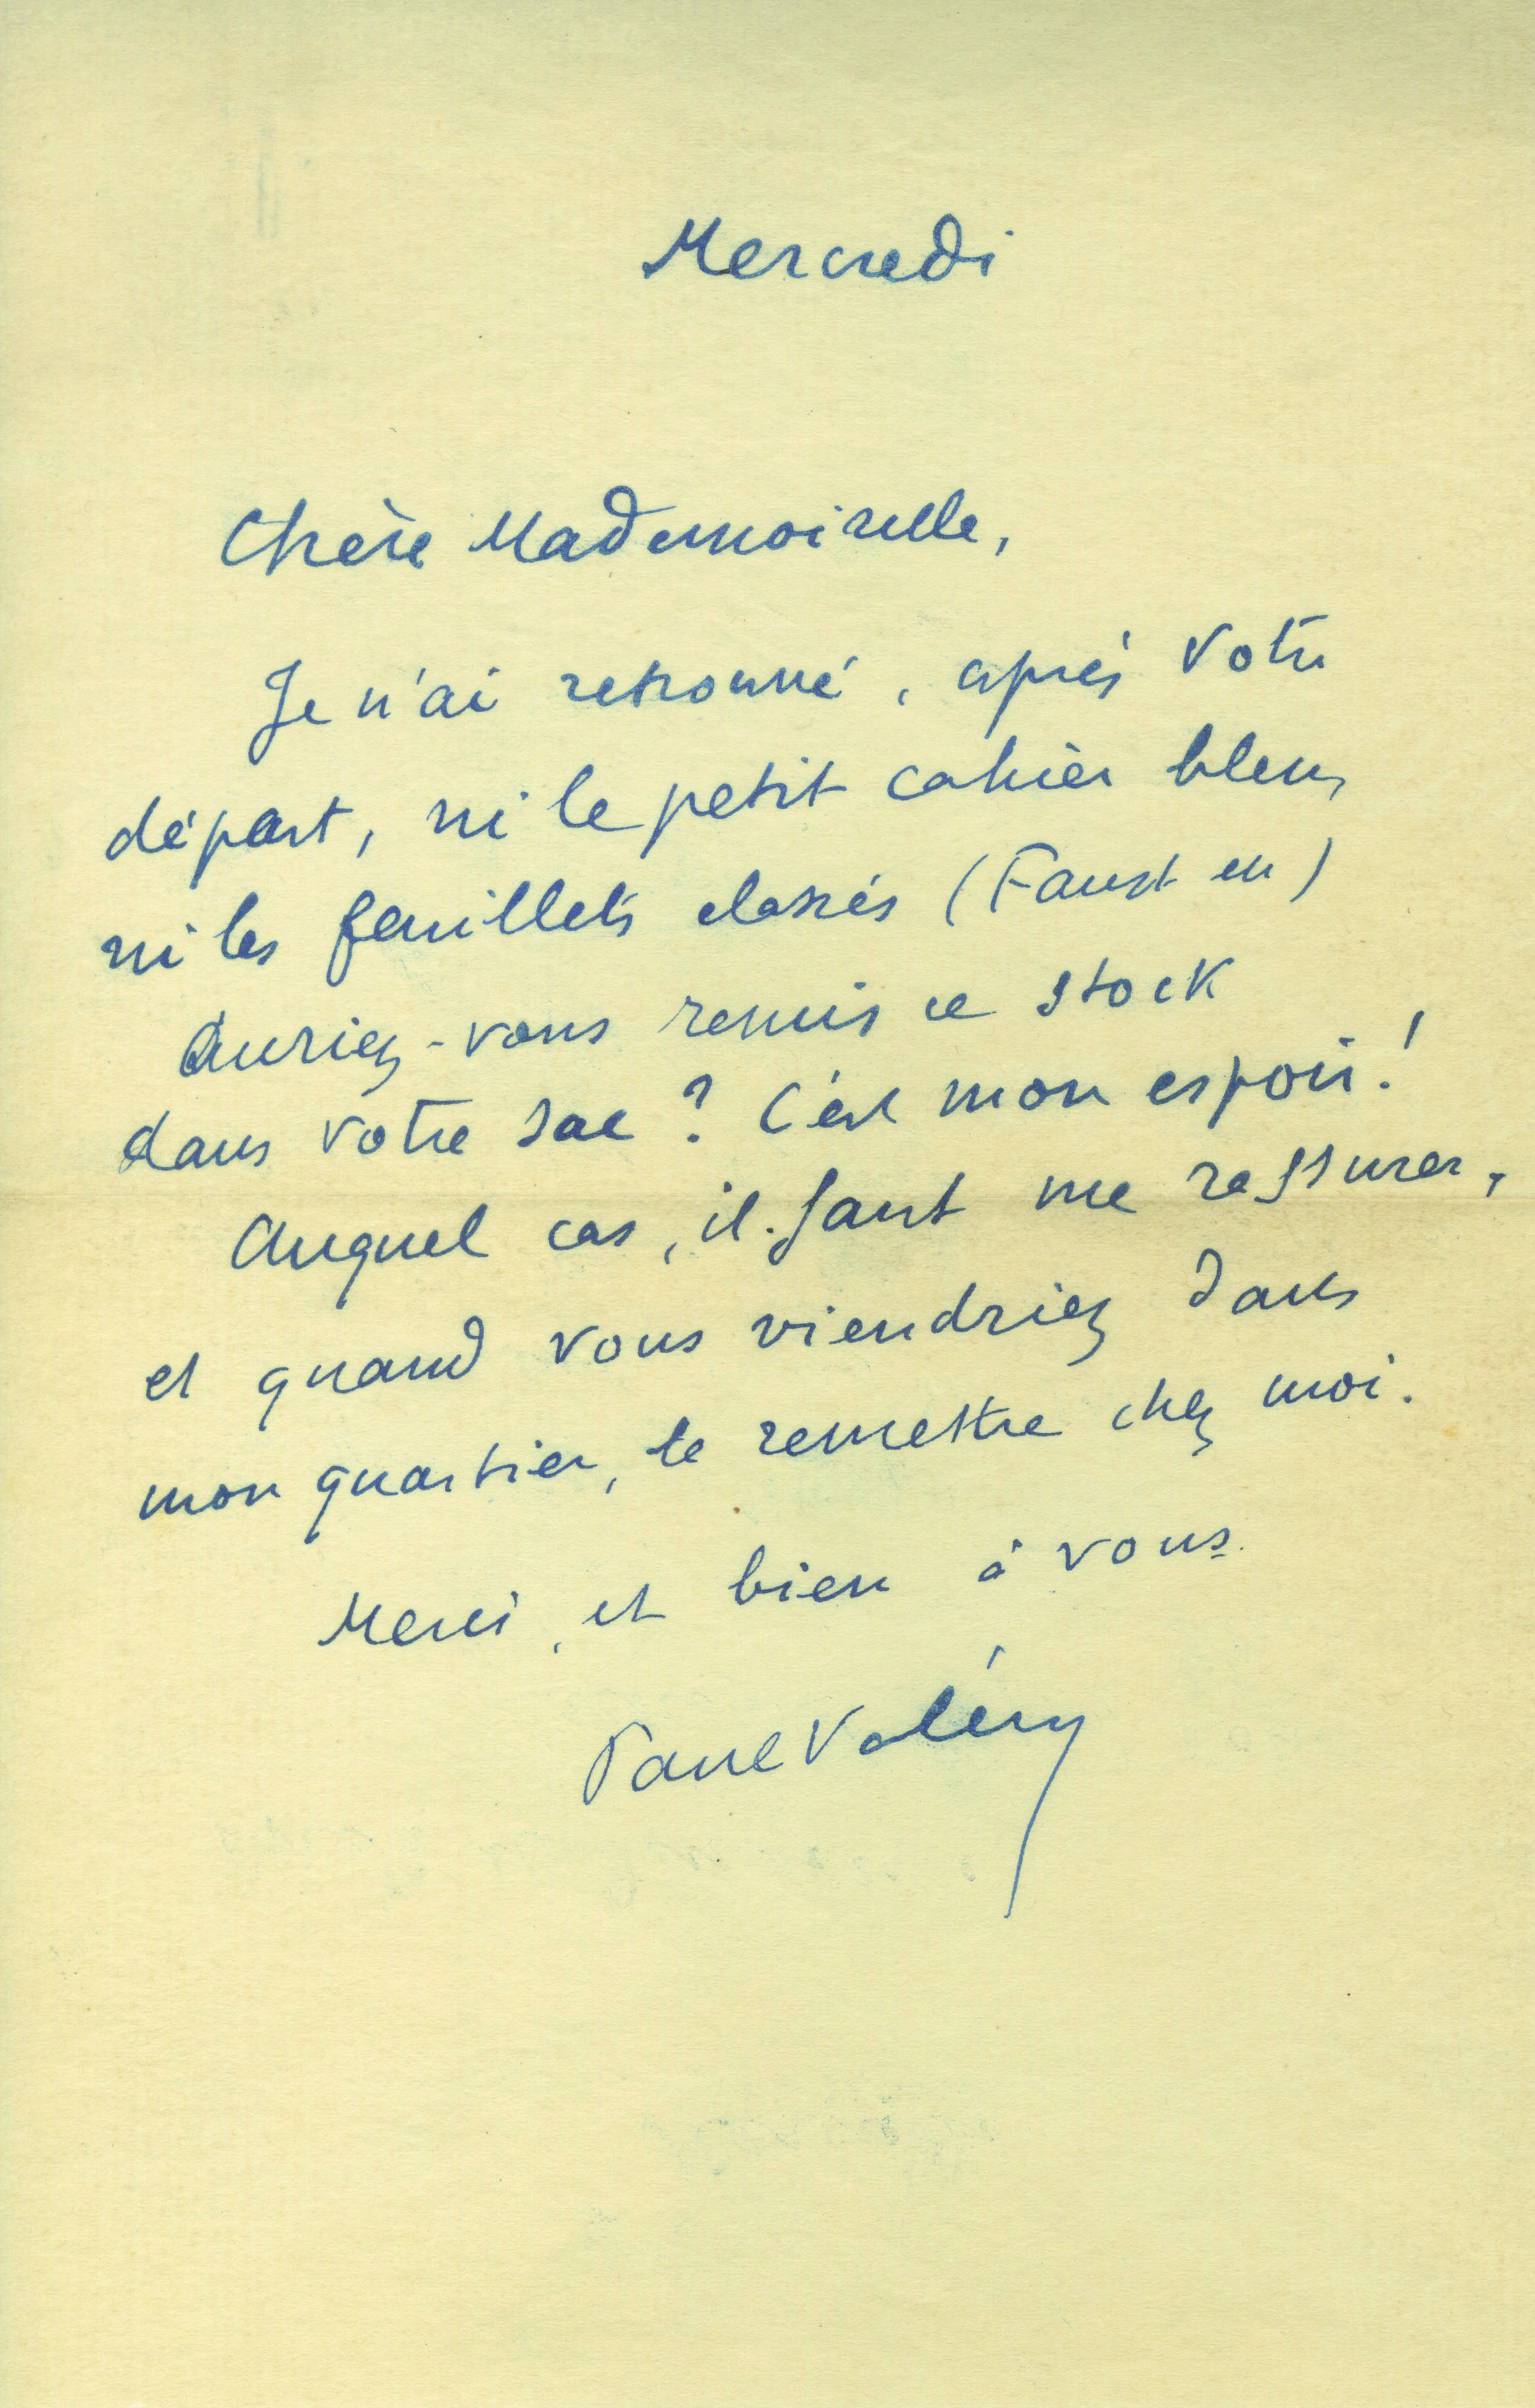 Mercredi
Chère Mademoiselle,
Je n'ai retrouvé, après votre
départ, ni le petit cahier bleu,
ni les feuillets classés (Faust III)
Auriez-vous remis ce stock
dans votre sac ? C'est mon espoir !
Auquel cas, il faut me rassurer,
et quand vous viendriez dans
mon quartier, le remettre chez moi.
Merci, et bien à vous.
Paul Valéry